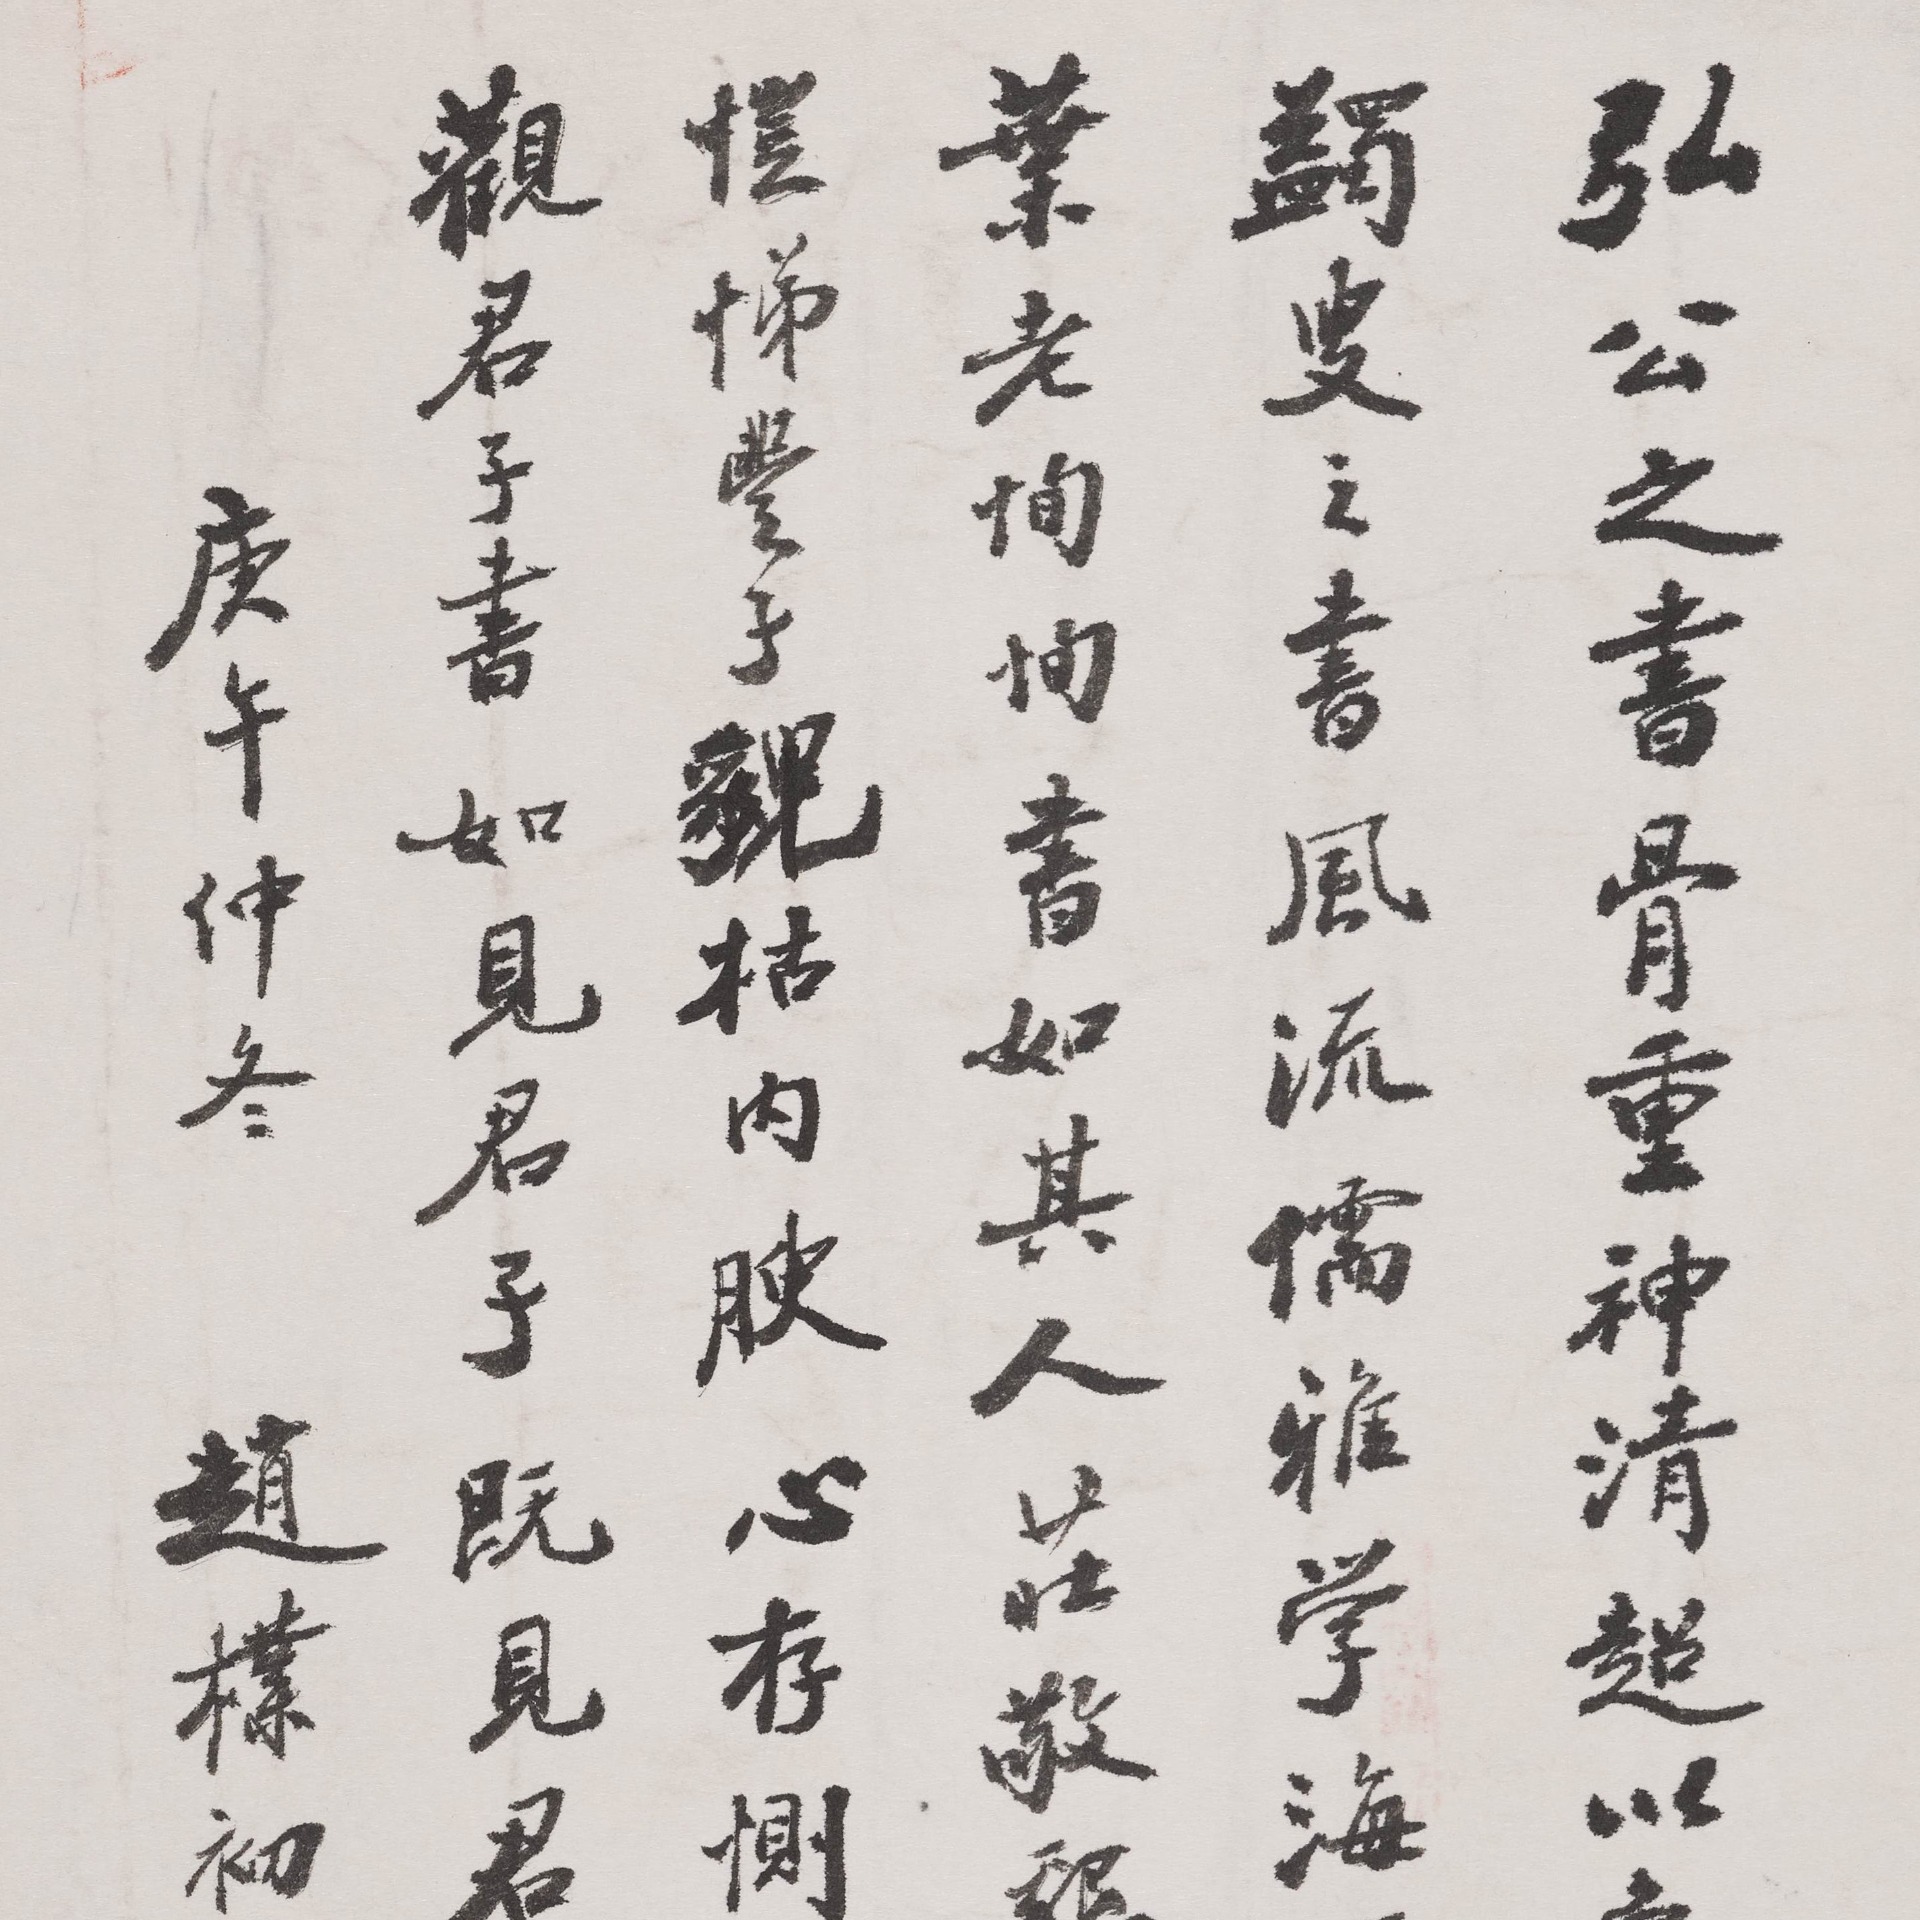 弘公之書骨重神清超以
蠲叟之書風流儒雅学海
葉老恂恂書如其人莊敬
愷悌豐子貌枯内腴心存惻
觀君子書如見君子既見君
庚午仲冬 趙樸初